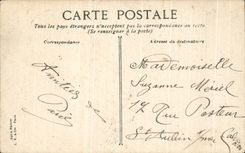 CARTE POSTALE
Tous les pays étrangers n'acceptent pas la correspondance au recto
(Se renseigner à la poste)
Correspondance
Adresse du destinataire
Amitiés
de
Mademoiselle
Suzanne
17 Rue Pasteur
St Aubin